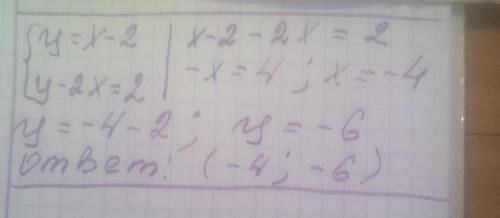 {y=x-2 | x-2-2x=2
{y-2x=2 | -x=4; x=-4
y=-4-2; y=-6
ответ: (-4; -6)